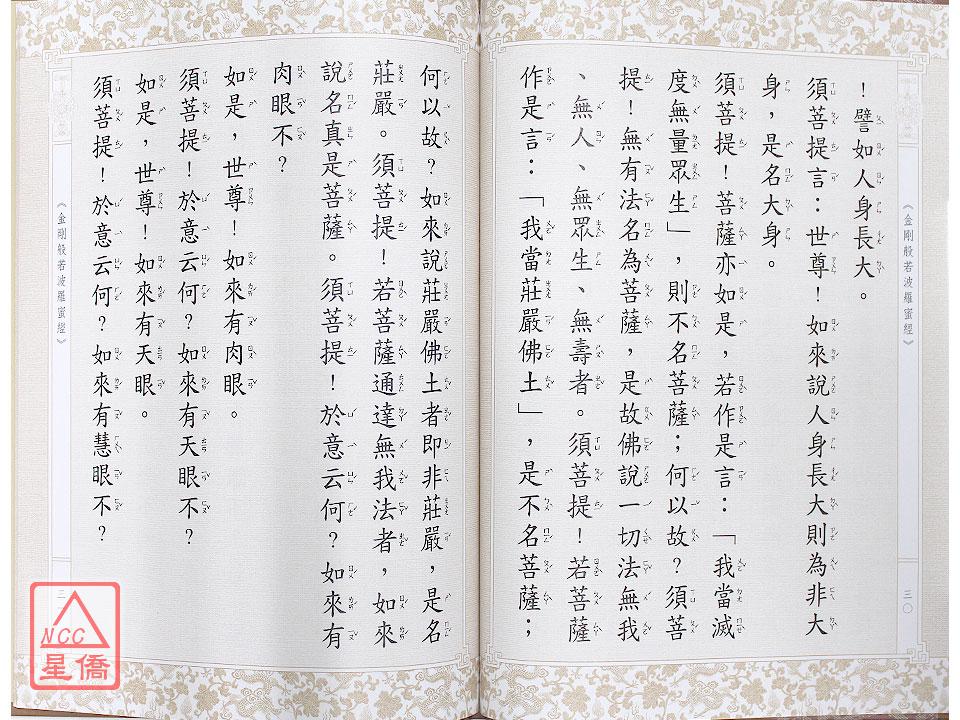 ！譬如人身長大。
須菩提言：世尊！如來說人身長大則為非大
身，是名大身。
須菩提！菩薩亦如是，若作是言：「我當滅
度無量眾生」，則不名菩薩；何以故？須菩
提！無有法名為菩薩，是故佛說一切法無我
、無人、無眾生、無壽者。須菩提！若菩薩
作是言：「我當莊嚴佛土」，是不名菩薩；
《金剛般若波羅蜜經》
三〇
何以故？如來說莊嚴佛土者即非莊嚴，是名
莊嚴。須菩提！若菩薩通達無我法者，如來
說名真是菩薩。須菩提！於意云何？如來有
肉眼不？
如是，世尊！如來有肉眼。
須菩提！於意云何？如來有天眼不？
如是，世尊！如來有天眼。
須菩提！於意云何？如來有慧眼不？
《金剛般若波羅蜜經》
三
NCC
星僑